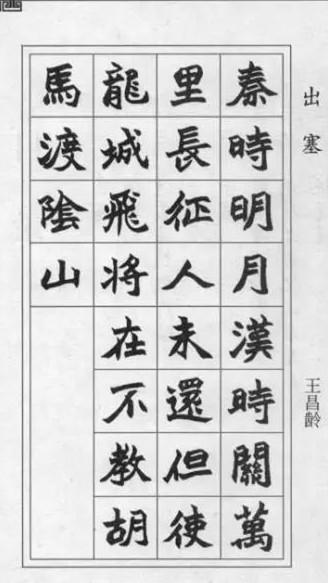 出塞
王昌齡
秦時明月漢時關萬
里長征人未還但使
龍城飛将在不教胡
馬渡陰山